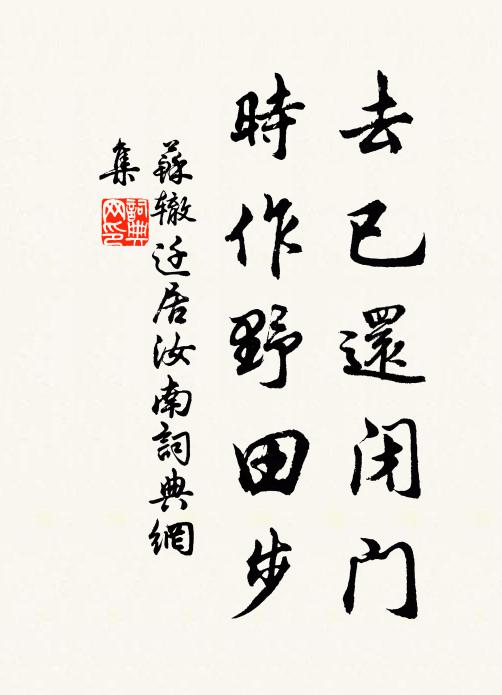 去已還闭门
時作野田步
蘇辙迁居汝南詞典網
集
詞典网印